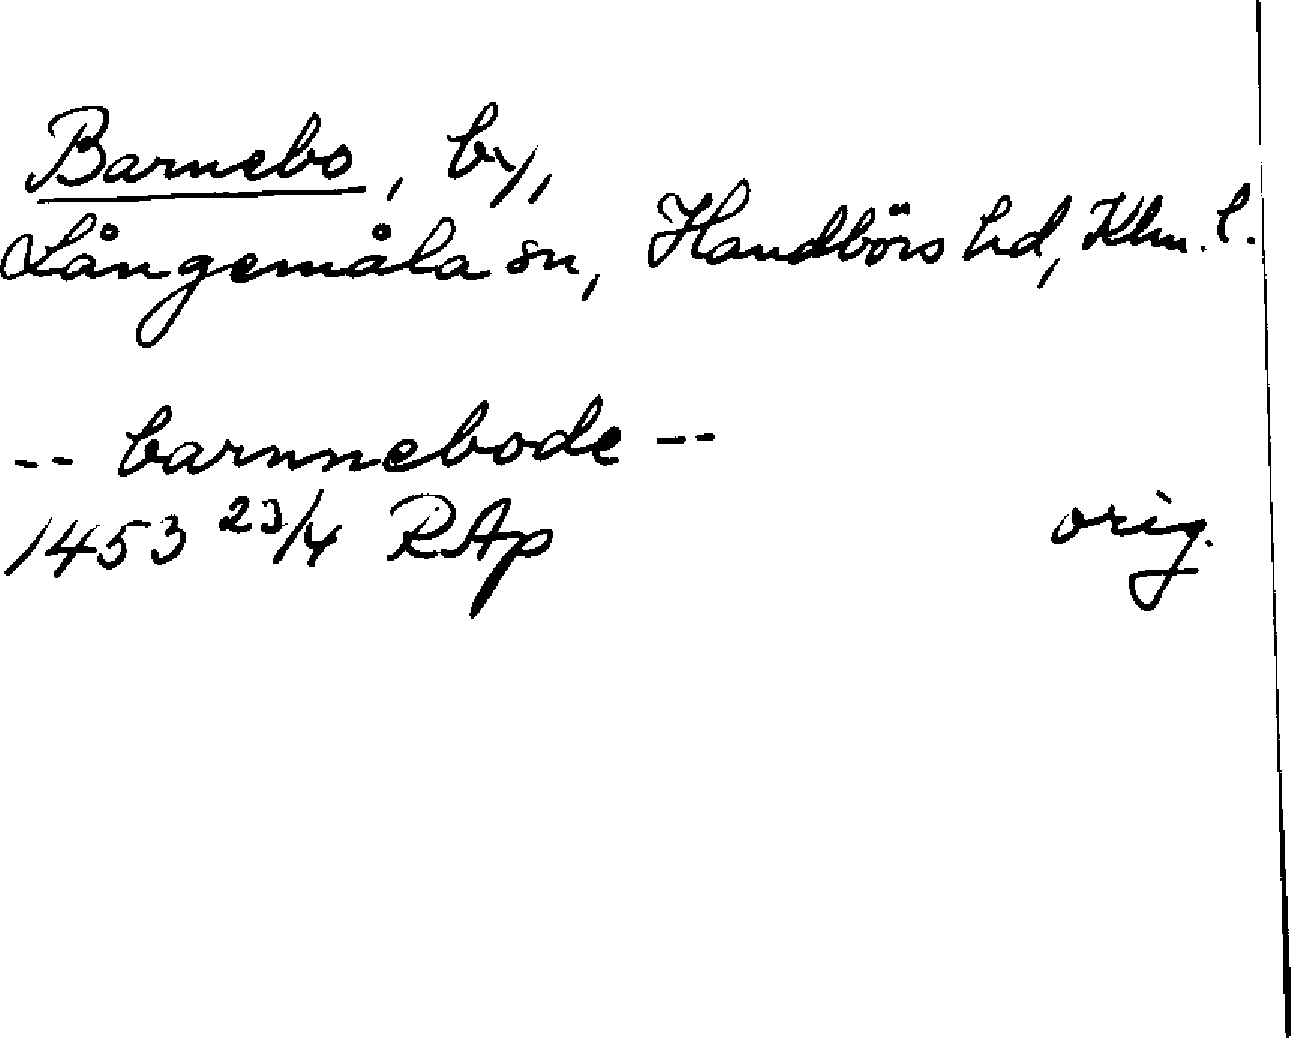 Barnebo, by,
Långemåla sn, Handbörs hd, Klm. l.
-- barnnebode --
1453 23/4 RAp orig.